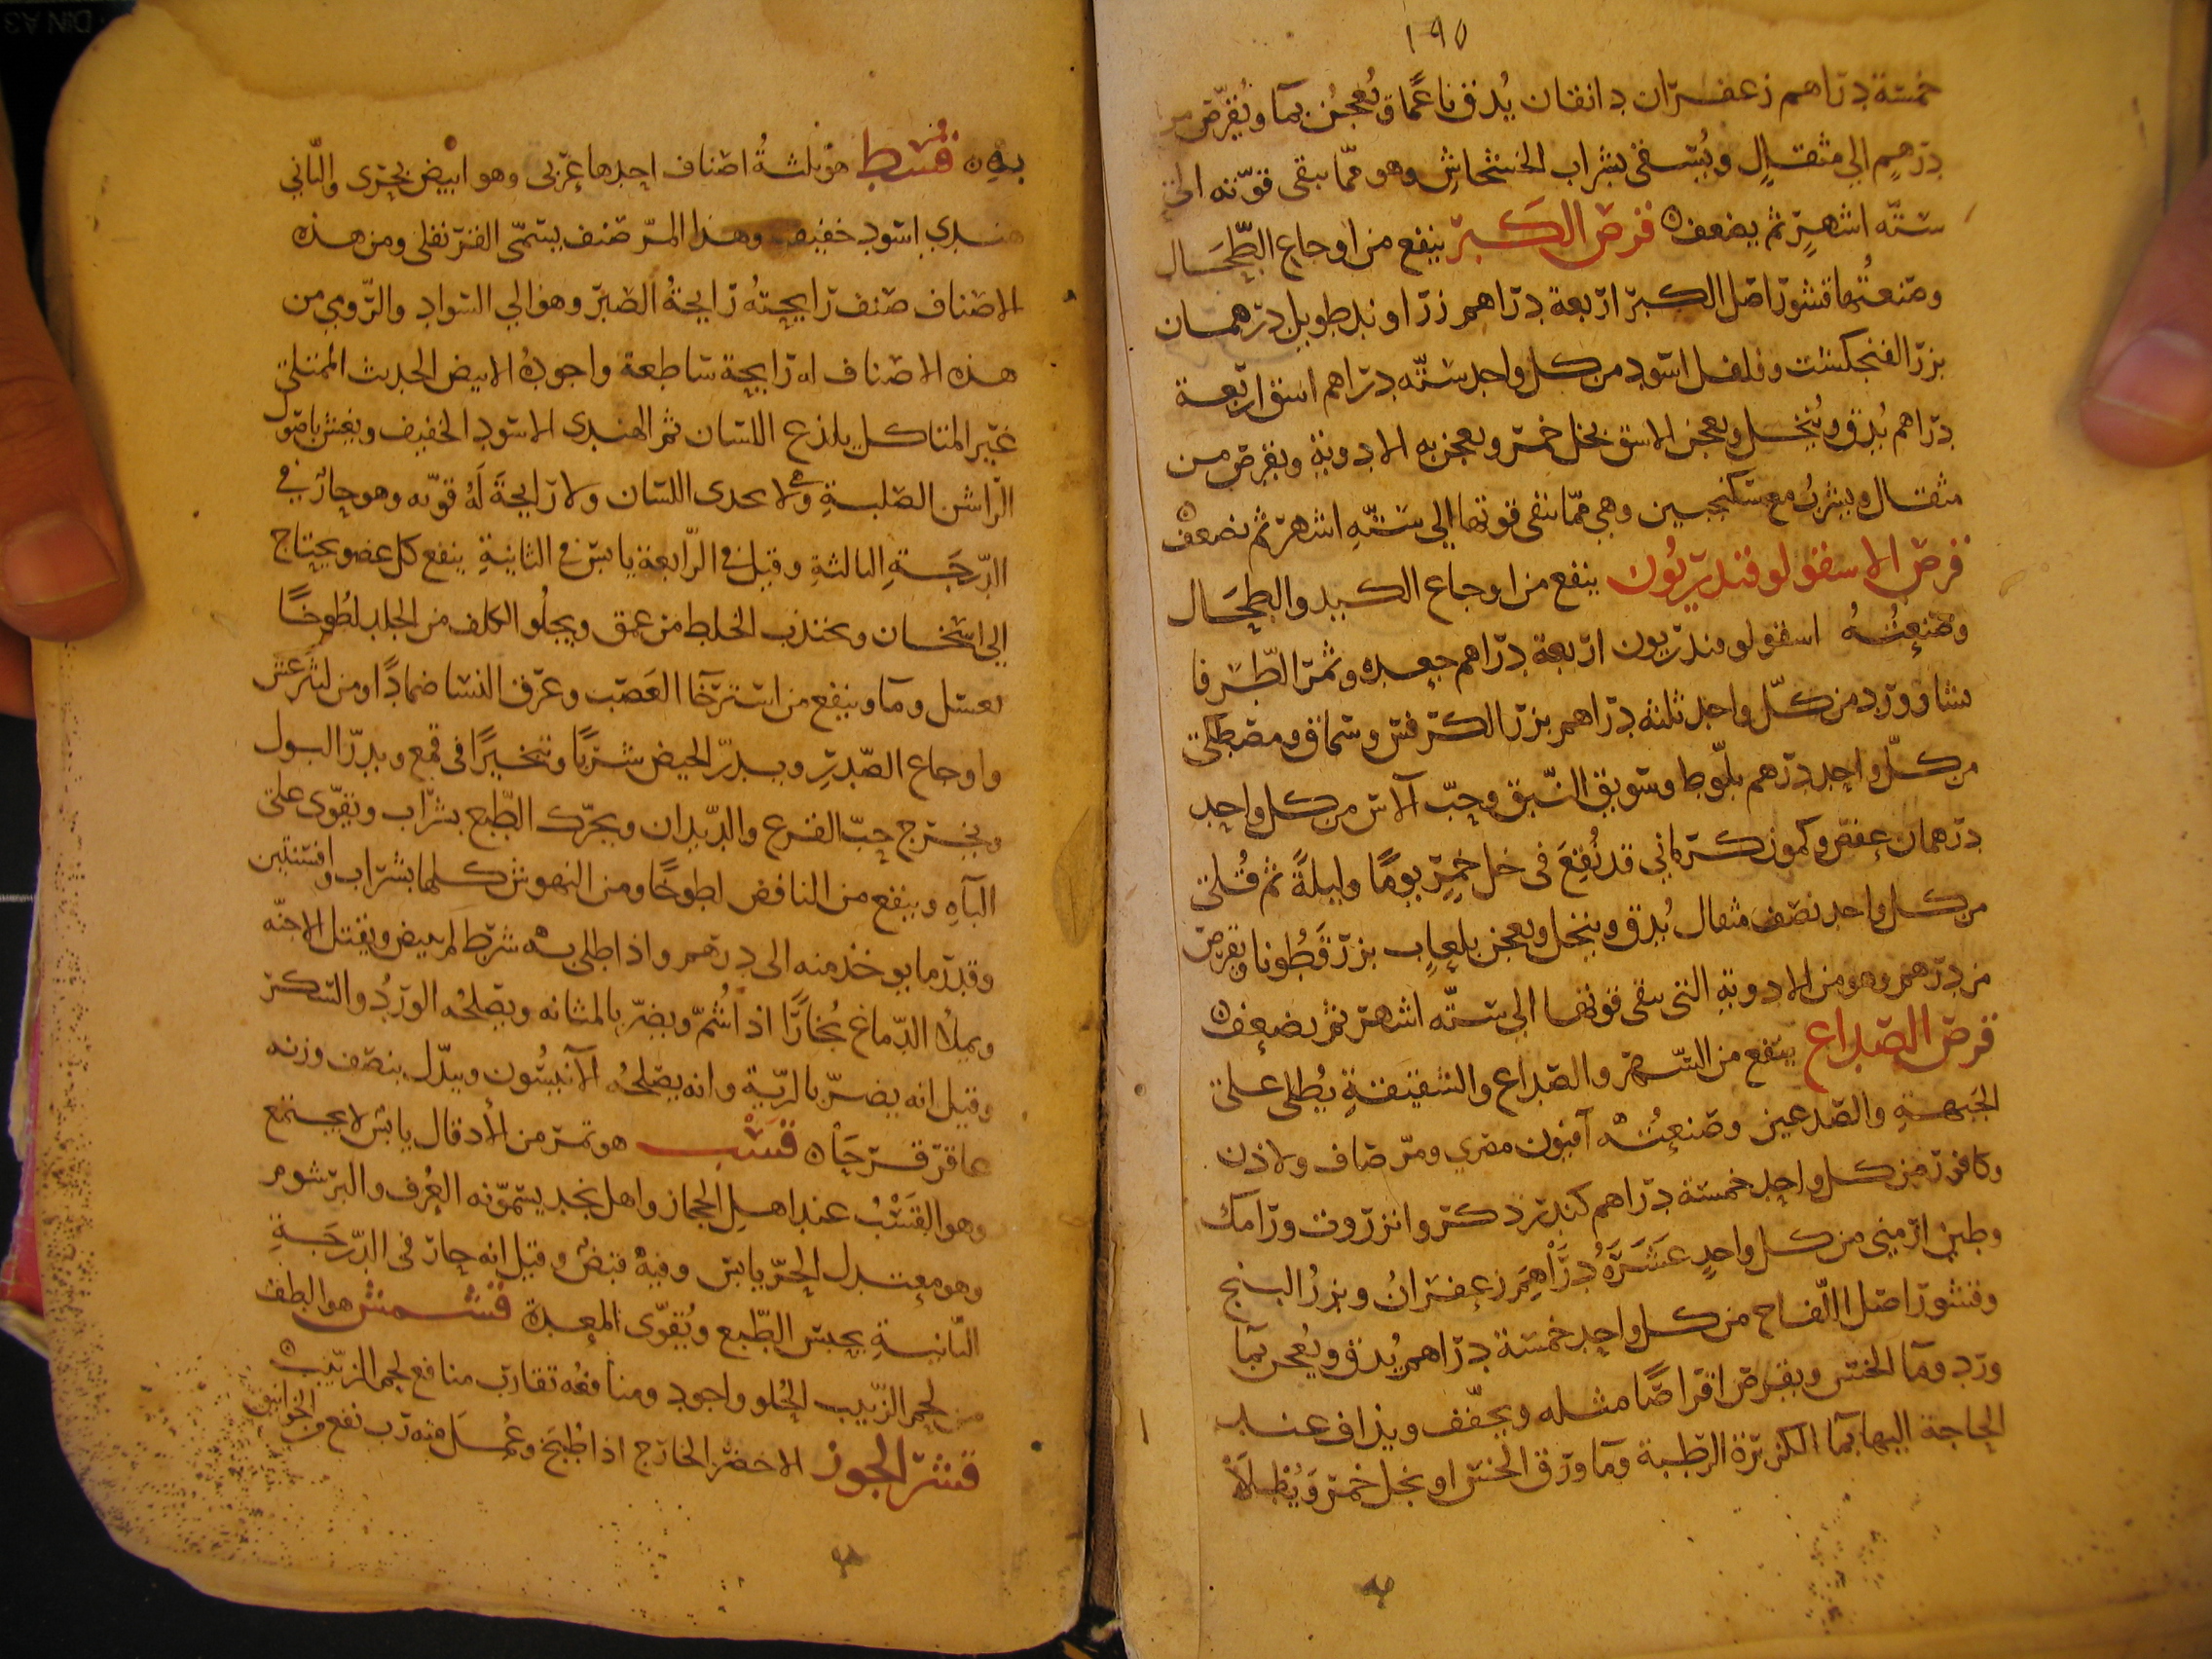 ١٩٥
خمسة دراهم زعفران دانقان يُدق ناعمًا وتُعجن بمآ وتُقرّص من
درهم الي مثقال ويُستقى بشراب الخشخاش وهو ممّا تبقى قوّته الى
ستّه اشهر ثم يضعف قرص الكبر ينفع من اوجاع الطّحال
وصنعتُها قشور اصل الكبر اربعة دراهم زراوند طويل درهمان
بزر الفنجكشت وفلفل اسود من كل واحد ستّه دراهم اشق اربعة
دراهم يُدق ويُنخل ويعجن الاشق بخل خمر ويعجن به الادوية ويقرص من
مثقال ويشرب مع سكنجبين وهي ممّا تبقى قوتها الي ستّه اشهر ثم تضعف
قرص الاسقولوقندريُون ينفع من اوجاع الكبد والطحال
وصنعتُه اسقولوقندريون اربعة دراهم جعده وثمر الطّرفا
نشا وورد من كلّ واحد ثلثه دراهم بزر الكرفس وسماق ومصطكى
من كلّ واحد درهم بلّوط وسويق النّبق وحبّ الآس من كل واحد
درهمان عفص وكمون كرماني قد نُقِعَ فى خل خمر يومًا وليلةً ثم قُلى
من كل واحد نصف مثقال يُدق وينخل ويعجن بلعاب بزر قَطُونا ويقرص
من درهم وهو من الادوية التى تبقى قوتها الي ستّه اشهر ثم يضعف
قرص الصداع ينفع من السّهر والصداع والشقيقة يُطلى على
الجَبهة والصدعين وصنعتُه آفيون مصري ومرّ صاف ولاذن
وكافور من كل واحد خمسة دراهم كندر ذكر وانزروت ورامك
وطين ارمينى من كل واحدٍ عَشَرَةُ دَرَاهِمَ زعفرانُ وبزرُ البنج
وقشور اصل اللّفاح من كل واحد خمسة دراهم يُدق ويُعجن بمآ
ورد ومآ الخس ويقرص اقراصًا مثله ويجفّف ويذاف عند
الحاجة اليها بمآ الكزبرة الرطبة ومآ ورق الخس او بخل خمر وَيُطلَأ
بهِ قُسْط هو ثلثةُ اصناف احدها عربى وهو ابيض بحرى والثّاني
هندي اسود خفيف وهذا المرّ صنف يسمّى القرنفلى ومن هذه
الاصناف صنف رايحتهُ رايحةُ الصّبر وهو الي السّواد والرّومي من
هذه الاصناف له رايحة ساطعة واجودُه الابيض الحديث الممتلئ
غير المتاكل يلذع اللسان ثم الهندى الاسود الخفيف ويغش باصول
الرّاسن الصّلبةِ وهى لا تحدى اللسان ولا رايحةَ لَهُ قوّيه وهو حارّ في
الدّرجَةِ الثالثةِ وقيل فى الرّابعة يابس فى الثانيةِ ينفع كل عضو يحتاج
الى اسّخان ويجتذب الخلط من عمق ويجلُو الكلف من الجلد لطُوخًا
بعسَل ومآ وينفع من استرخآ العَصَب وعرق النسا ضمادًا ومن ليثرغس
واوجاع الصّدرِ ويدرّ الحيض شربًا وتبخيرًا فى قمع ويدرّ البول
ويخرج حبّ القرع والدّيدان ويحرّك الطّبع بشراب ويقوّى على
البآهِ وينفع من النافض لطوخًا ومن النهوش كلها بشراب وافسنتين
وقدر ما يوخذ منه الى درهم واذا طلى به شرط لم يبيض ويقتل الاجنّه
ويملأ الدّماغ بُخارًا اذا شُمّ ويضرّ بالمثانه ويصلحُه الورَدُ والسّكر
وقيل انه يضرّ بالريّة وانه يصلحُه الآنيسُون ويبدّل بنصف وزنه
عاقرقرحَا قَسْب هو تمر من الأدقال يابس لا يجتمع
وهو القَسْبُ عند اهل الحجاز واهل نجد يسمّونه العُرف والبرشوم
وهو معتدل الحرّ يابس وفيهْ قبض وقيل انه حارّ فى الدّرجَةِ
الثّانيةِ يحبس الطّبع ويُقوّى المعدة قشمش هو الطف
من لحم الزّبيب الحُلو واجود ومنافعُه تقارب منافع لحم الزّبيب
قشر الجوز الاخضر الخارج اذا طُبخ وعُمل منه رّب نفع من الخوانيق